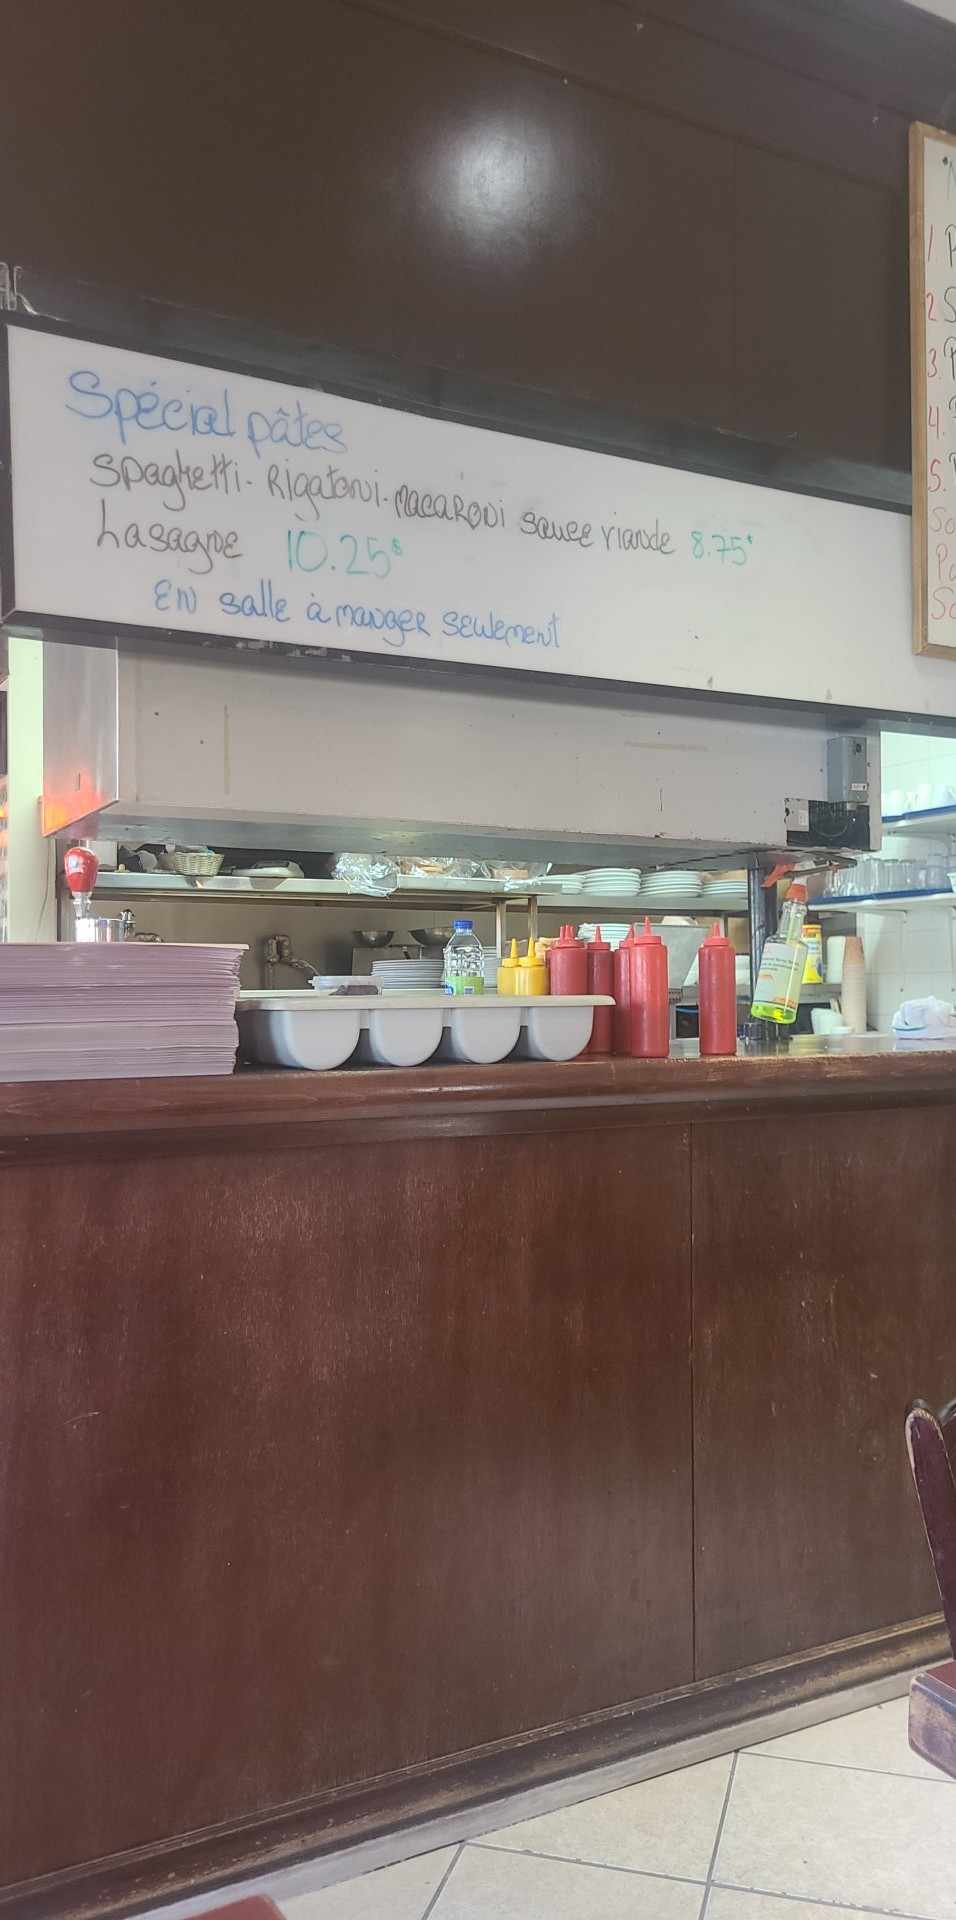 Spécial pâtes
Spaghetti - Rigatoni - macaroni sauce viande 8.75$
Lasagne 10.25$
En salle à manger seulement
1
2 S
3.
4.
5.